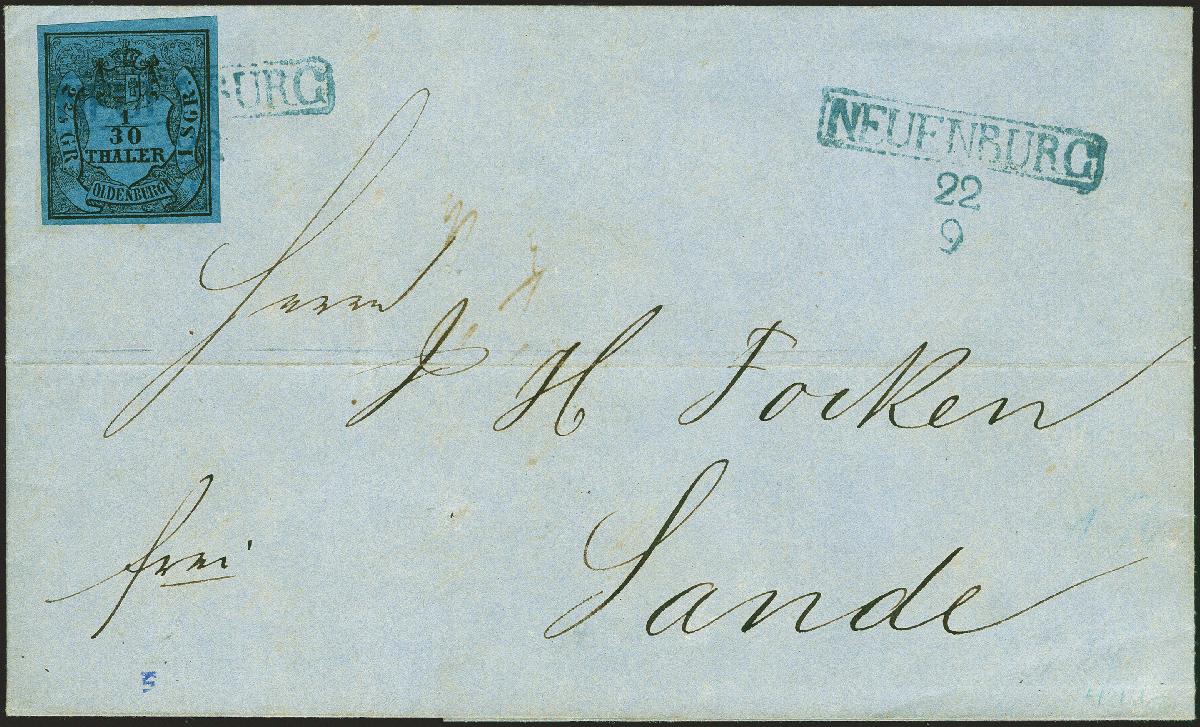 1
30
THALER
2 2/5 GR.
1 SGR.
OLDENBURG
BURG
NEUENBURG
22
9
Herrn
J H Focken
frei
Sande
5